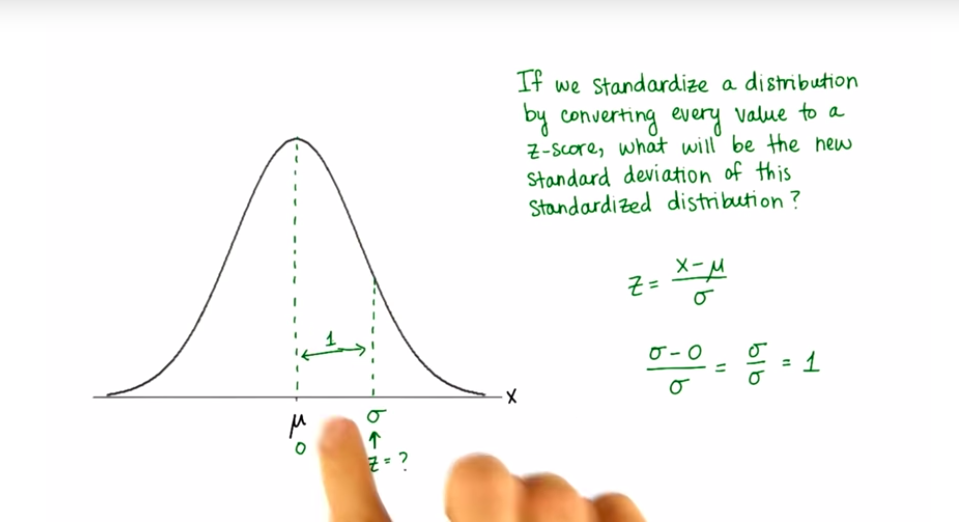 If we standardize a distribution
by converting every value to a
z-score, what will be the new
standard deviation of this
standardized distribution?
z = x-μ/σ
σ-0/σ = σ/σ = 1
1
x
μ
σ
0
↑
z = ?